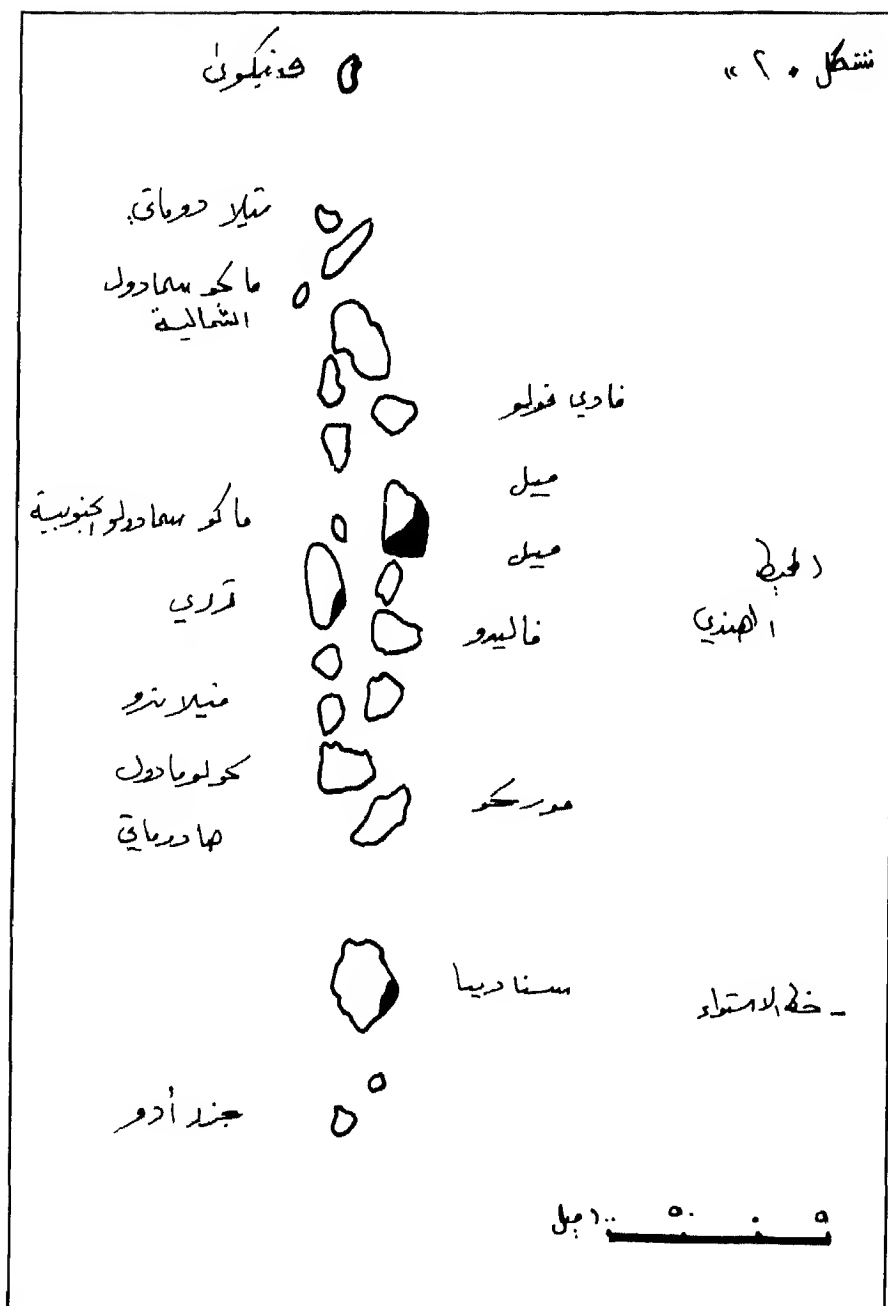 شكل ٢٠ "
منيكوى
متيلا دوماتي
ماكو سمادول
الشمالية
فادي فولو
ميل
ماكو سمادولو الجنوبية
ميل
المحيط
الهندي
فاليدو
منيلاندو
كولومادول
موركو
هادوماتي
سناديبا
- خط الاستواء
جزر أدو
٥ ٠ ٥٠ ١٠٠ ميل